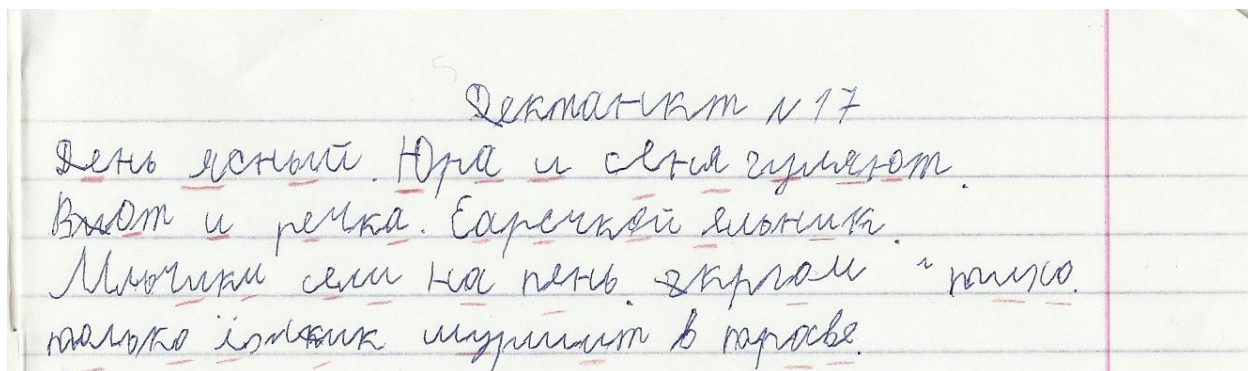 Дектанкт N 17
День ясный. Юра и сеня гуляют.
Вот и речка. Еаречкой яльник.
Мльчики сели на пень. экргом тихо.
только южик шуршит в тораве.